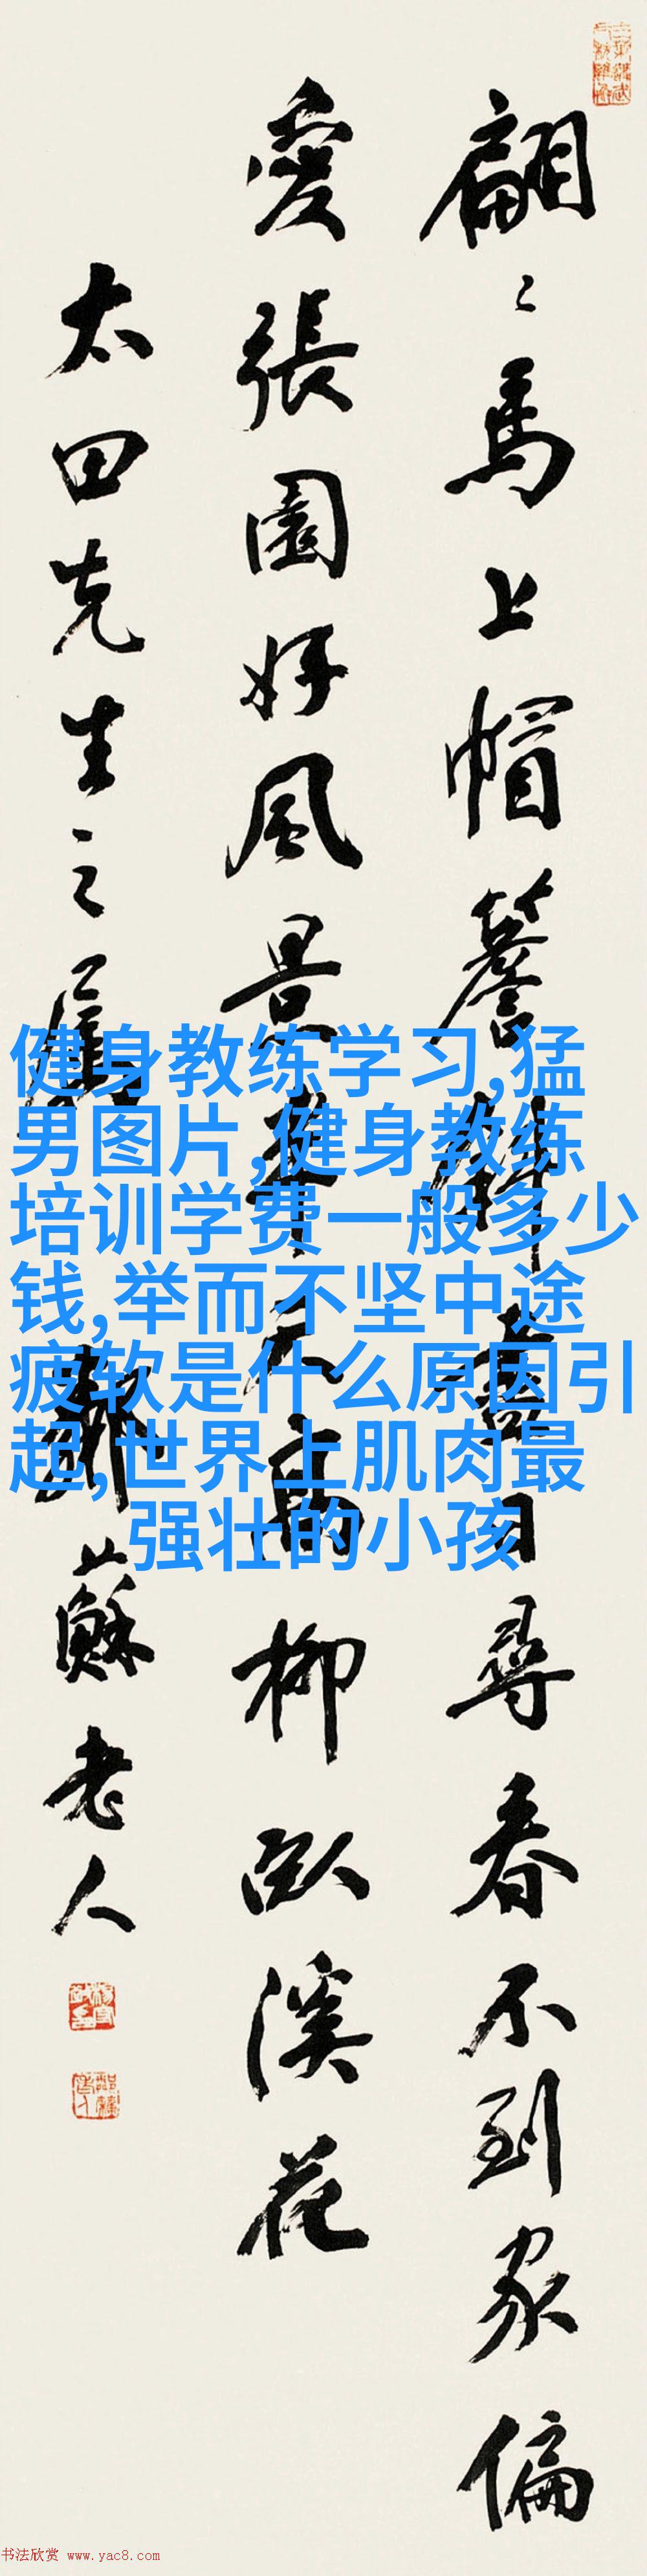 翩〻馬上帽簷斜盡日尋春不到家偏
愛張園好風景半天高柳臥溪花
太田先生之屬
蘇老人
健身教练学习,猛
男图片,健身教练
培训学费一般多少
钱,举而不坚中途
疲软是什么原因引
起,世界上肌肉最
强壮的小孩
书法欣赏 www.yac8.com